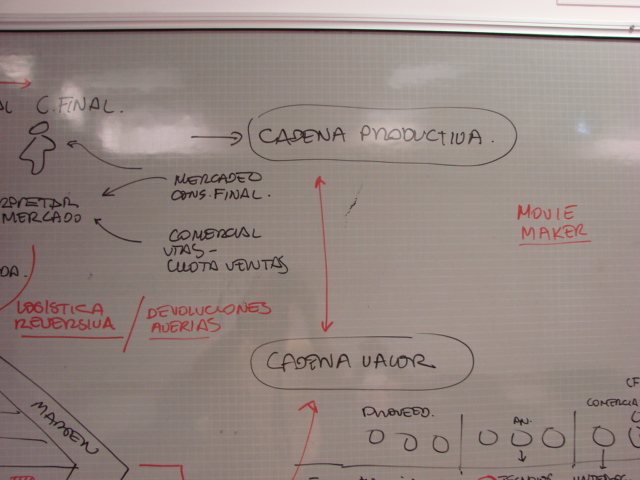 C. FINAL.
CADENA PRODUCTIVA.
MERCADEO
CONS. FINAL.
MERCADO
COMERCIAL
VTAS -
CUOTA VENTAS
MOVIE
MAKER
LOGÍSTICA
REVERSIVA
DEVOLUCIONES
AVERIAS
CADENA VALOR
MARGEN
PROVEED.
AN.
COMERCIA